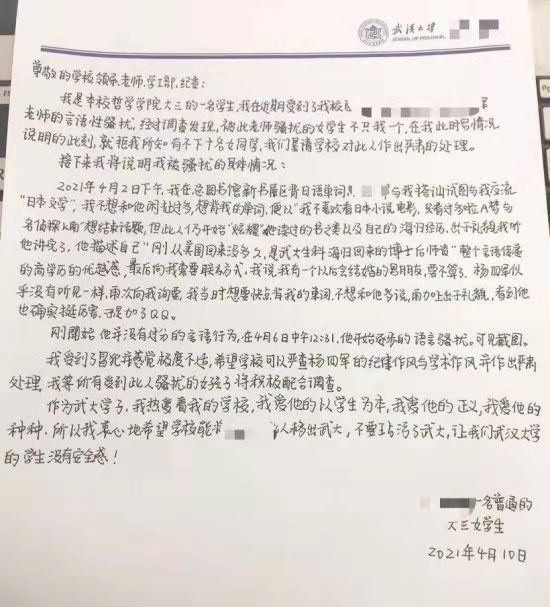 武汉大学
SCHOOL OF PHILOSOPHY
尊敬的学校领导、老师、学工部、纪查：
我是本校哲学学院大三的一名学生，我在近期受到了我校
老师的言语性骚扰，经过调查发现，被此老师骚扰的女学生不只我一个，在我此时写情况
说明的此刻，就据我所知有不下十名女同学，我们恳请学校对此人作出严肃的处理。
接下来我将说明我被骚扰的具体情况：
2021年4月2日下午，我在总图书馆新书展区背日语单词，与我搭讪试图与我交流
"日本文学"，我不想和他闲聊过多，想背我的单词，便以"我不喜欢看日本小说电影，只看过多啦A梦与
名侦探柯南"想结束话题，但此人仍开始"炫耀"他读过的书之类以及自己的海归经历，出于礼貌我听
他讲完了，他描述自己"刚从美国回来没多久，是武大生科海归回来的博士后师资"整个言语传递
的高学历的优越感，最后向我索要联系方式，我说，我有一个以后会结婚的男朋友，要不算了，杨四军似
乎没有听见一样，再次向我询要，我当时想要快点背我的单词，不想和他多说，再加上出于礼貌，看到他
也确实挺厉害，于是加了QQ。
刚開始他并没有过分的言语行为，在4月6日中午12:31，他开始逐步的语言骚扰。可见截图。
我受到了冒犯并感觉极度不适，希望学校可以严查杨四军的纪律作风与学术作风并作出严肃
处理，我等所有受到此人骚扰的女孩子将积极配合调查。
作为武大学子，我热爱着我的学校，我爱他的以学生为本，我爱他的正义，我爱他的
种种，所以我衷心地希望学校能将 此人杨出武大，不要玷污了武大，让我们武汉大学
的学生没有安全感！
一名普通的
大三女学生
2021年4月10日